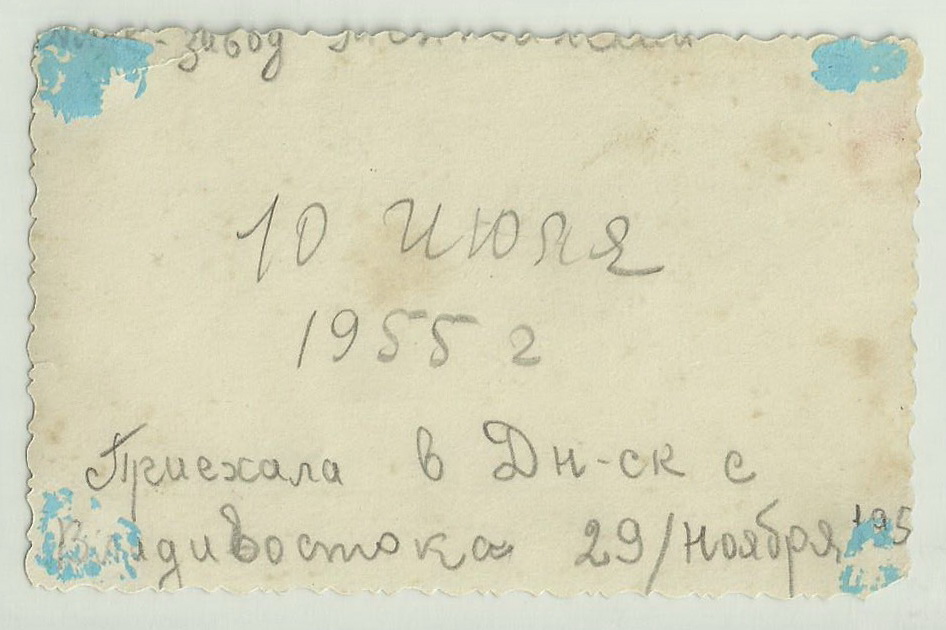 завод
10 июля
1955 г
Приехала в Дн-ск с
Владивостока 29/ноября 195